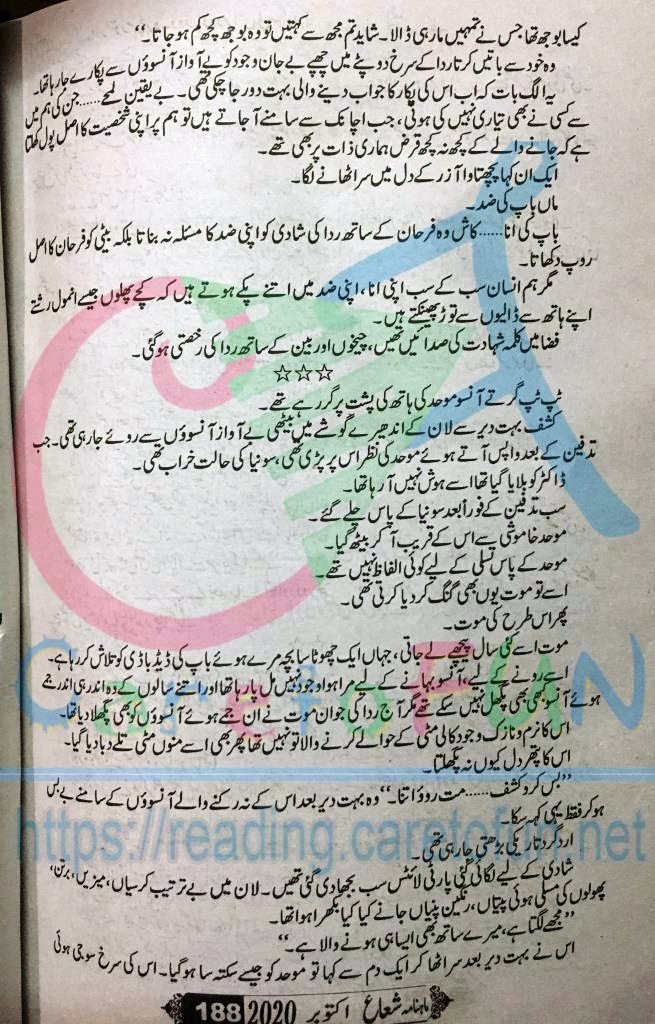 کیسا بوجھ تھا جس نے تمہیں مار ہی ڈالا۔ شاید تم مجھ سے کہتیں تو وہ بوجھ کچھ کم ہو جاتا۔‘‘
وہ خود سے باتیں کرتا ردا کے سرخ دوپٹے میں چھپے بے جان وجود کو بے آواز آنسوؤں سے پکارے جا رہا تھا۔
یہ الگ بات کہ اب اس کی پکار کا جواب دینے والی بہت دور جا چکی تھی۔ بے یقین لمحے...... جن کی ہم میں
سے کسی نے بھی تیاری نہیں کی ہوتی، جب اچانک سے سامنے آ جاتے ہیں تو ہم پر اپنی شخصیت کا اصل پول کھلتا
ہے کہ جانے والے کے کچھ نہ کچھ قرض ہماری ذات پر بھی تھے۔
ایک ان کہا پچھتاوا آزر کے دل میں سر اٹھانے لگا۔
ماں باپ کی ضد۔
باپ کی انا...... کاش وہ فرحان کے ساتھ ردا کی شادی کو اپنی ضد کا مسئلہ نہ بناتا بلکہ بیٹی کو فرحان کا اصل
روپ دکھاتا۔
مگر ہم انسان سب کے سب اپنی انا، اپنی ضد میں اتنے پکے ہوتے ہیں کہ کچے پھلوں جیسے انمول رشتے
اپنے ہاتھ سے ڈالیوں سے توڑ پھینکتے ہیں۔
فضا میں کلمہ شہادت کی صدائیں تھیں، چیخوں اور بین کے ساتھ ردا کی رخصتی ہو گئی۔
☆☆☆
ٹپ ٹپ گرتے آنسو موحد کی ہاتھ کی پشت پر گر رہے تھے۔
کشف بہت دیر سے لان کے اندھیرے گوشے میں بیٹھی بے آواز آنسوؤں سے روئے جا رہی تھی۔ جب
تدفین کے بعد واپس آتے ہوئے موحد کی نظر اس پر پڑی تھی، سونیا کی حالت خراب تھی۔
ڈاکٹر کو بلایا گیا تھا اسے ہوش نہیں آ رہا تھا۔
سب تدفین کے فوراً بعد سونیا کے پاس چلے گئے۔
موحد خاموشی سے اس کے قریب آ کر بیٹھ گیا۔
موحد کے پاس تسلی کے لیے کوئی الفاظ نہیں تھے۔
اسے تو موت یوں بھی گنگ کر دیا کرتی تھی۔
پھر اس طرح کی موت۔
موت اسے کئی سال پیچھے لے جاتی، جہاں ایک چھوٹا سا بچہ مرے ہوئے باپ کی ڈیڈ باڈی کو تلاش کر رہا ہے۔
اسے رونے کے لیے، آنسو بہانے کے لیے مرا ہوا وجود نہیں مل پا رہا تھا اور اتنے سالوں کے وہ اندر ہی اندر جمے
ہوئے آنسو کبھی بھی پگھل نہیں سکے تھے مگر آج ردا کی جوان موت نے ان جمے ہوئے آنسوؤں کو بھی پگھلا دیا تھا۔
اس کا نرم و نازک وجود کالی مٹی کے حوالے کرنے والا تو نہیں تھا پھر بھی اسے منوں مٹی تلے دبا دیا گیا۔
اس کا پتھر دل کیوں نہ پگھلتا۔
’’بس کرو کشف...... مت روؤ اتنا۔‘‘ وہ بہت دیر بعد اس کے نہ رکنے والے آنسوؤں کے سامنے بے بس
ہو کر فقط یہی کہہ سکا۔
اردگرد تاریکی بڑھتی جا رہی تھی۔
شادی کے لیے لگائی گئی پارٹی لائٹس سب بجھا دی گئی تھیں۔ لان میں بے ترتیب کرسیاں، میزیں، برتن،
پھولوں کی مسلی ہوئی پتیاں، رنگین پنیاں جانے کیا کیا بکھرا ہوا تھا۔
’’مجھے لگتا ہے، میرے ساتھ بھی ایسا ہی ہونے والا ہے۔‘‘
اس نے بہت دیر بعد سر اٹھا کر ایک دم سے کہا تو موحد کو جیسے سکتہ سا ہو گیا۔ اس کی سرخ سوجی ہوئی
ماہنامہ شعاع اکتوبر 2020 188
CareToFUN
https://reading.caretofun.net